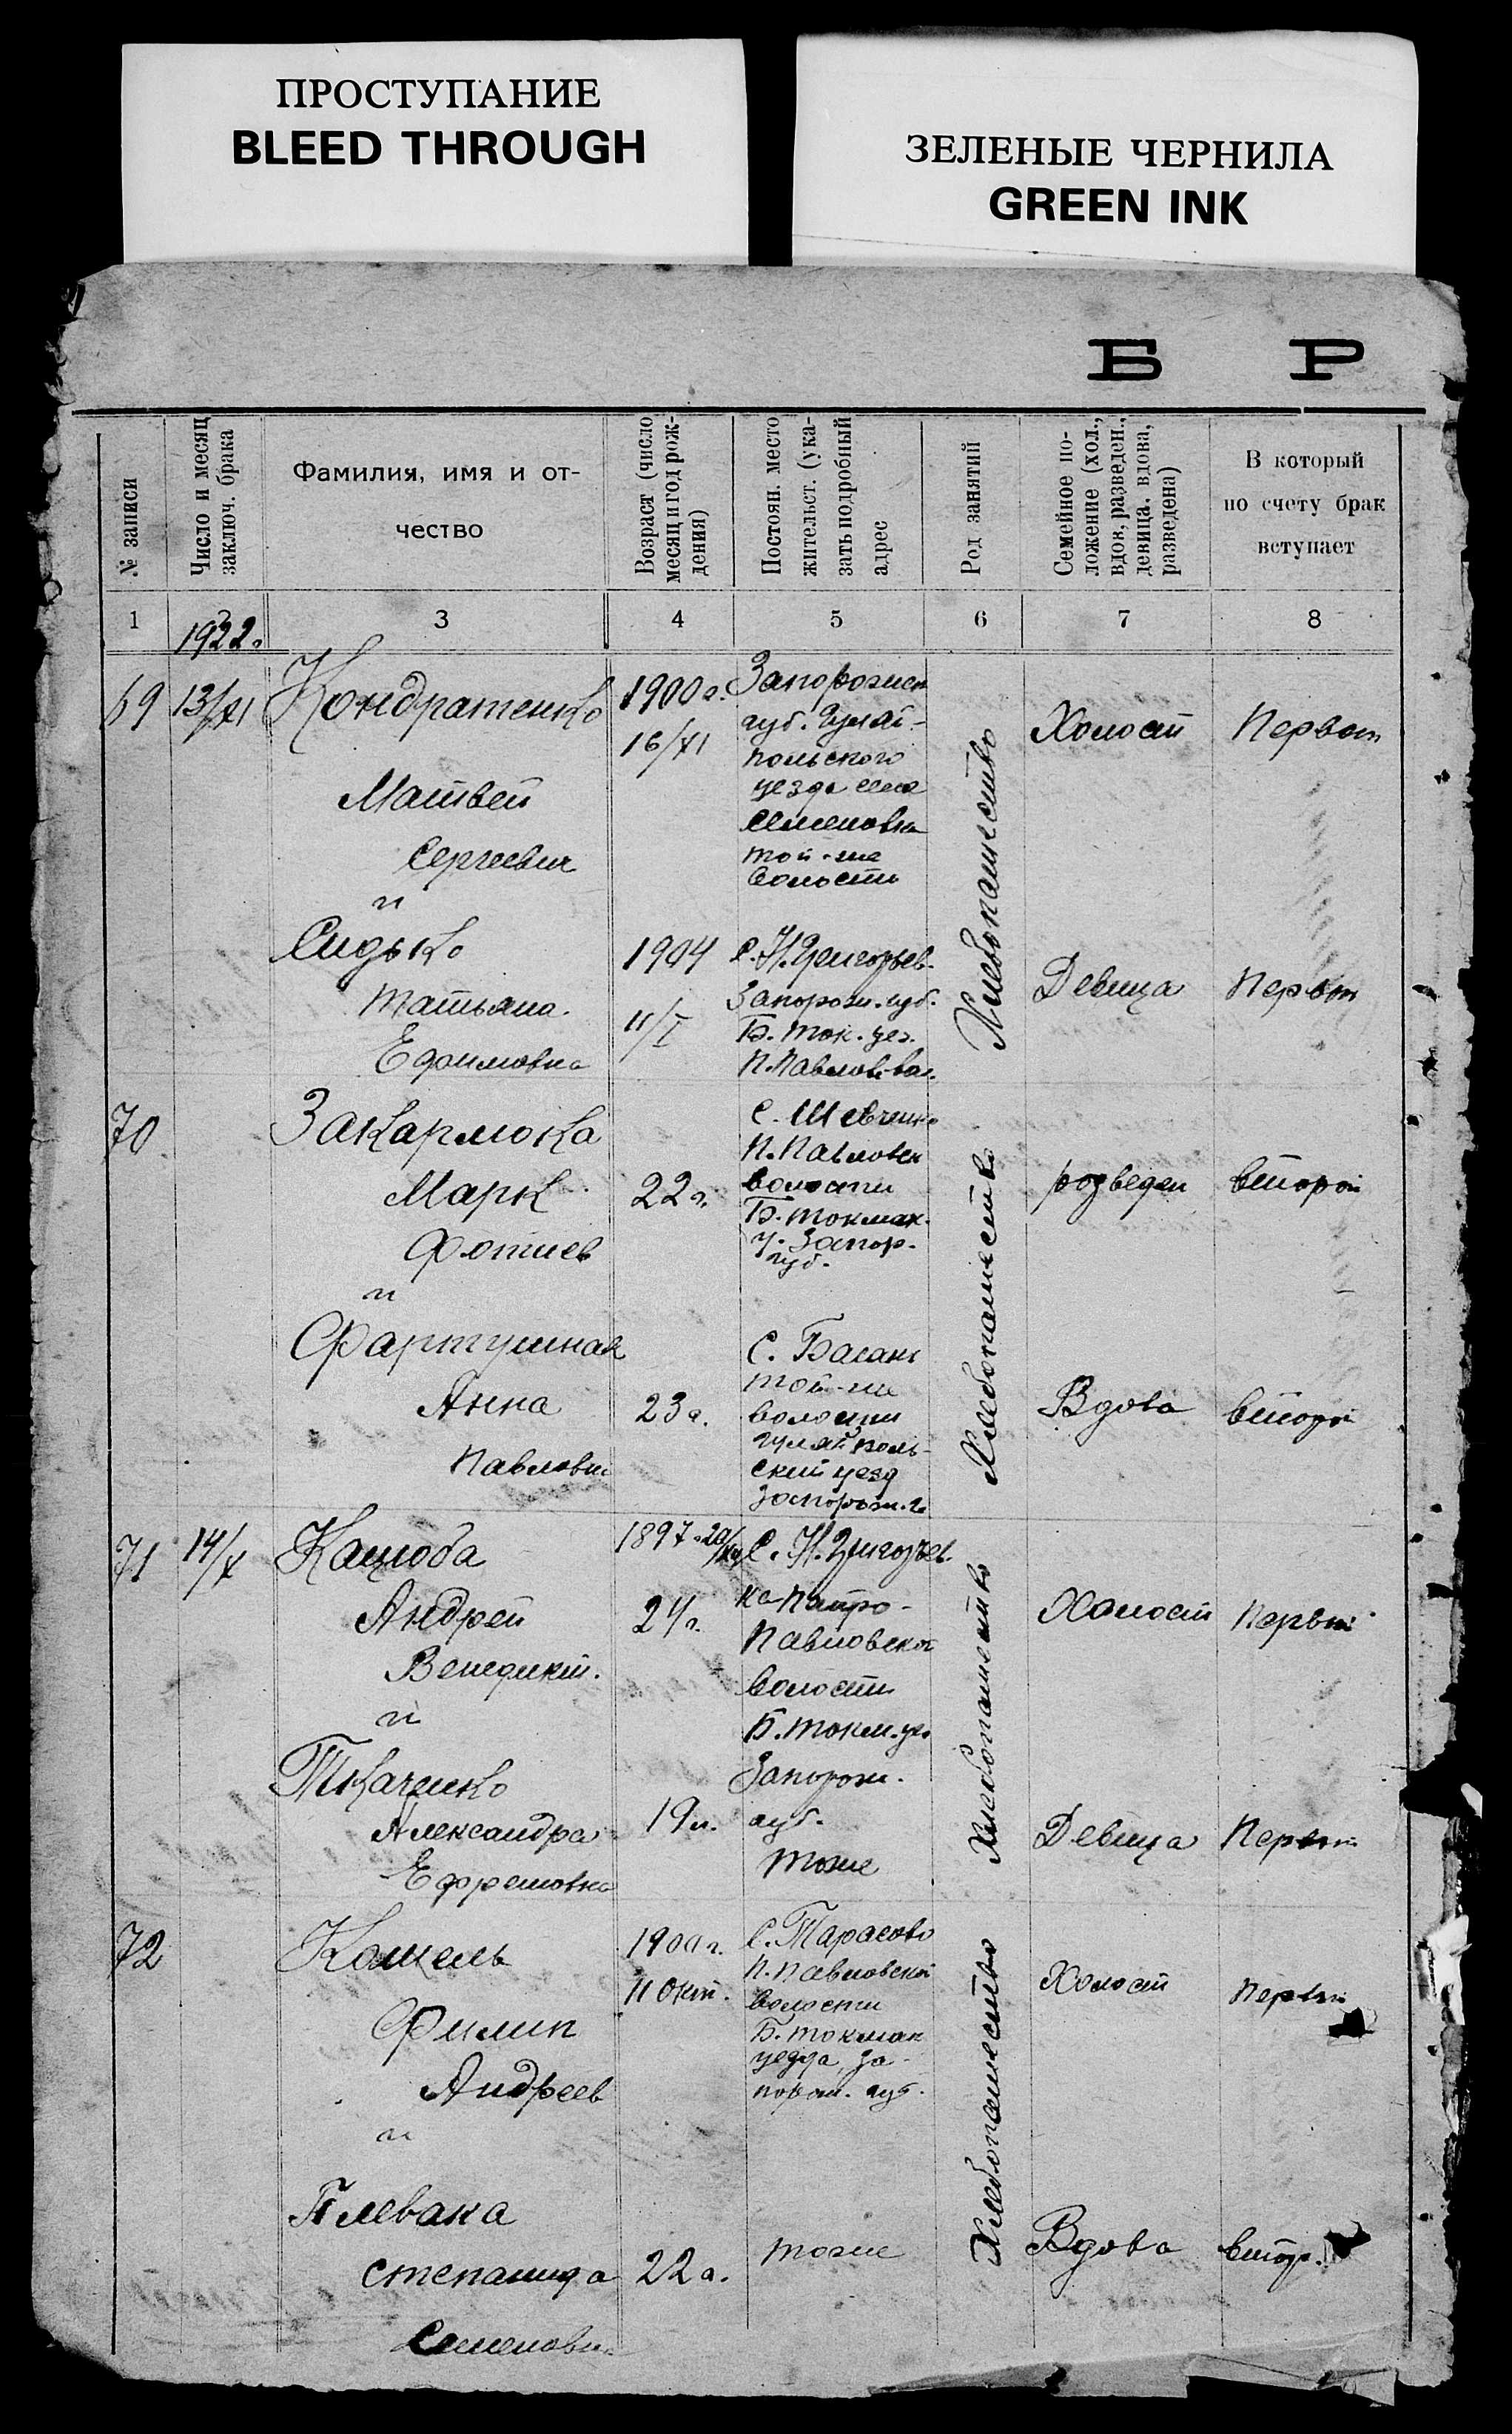 ПРОСТУПАНИЕ
BLEED THROUGH
ЗЕЛЕНЫЕ ЧЕРНИЛА
GREEN INK
Б Р
№ записи
Число и месяц
заключ. брака
Фамилия, имя и от-
чество
Возраст (число
месяц и год рож-
дения)
Постоян. место
жительст. (ука-
зать подробный
адрес
Род занятий
Семейное по-
ложение (хол.,
вдов, разведен.,
девица, вдова,
разведена)
В который
по счету брак
вступает
1 3 4 5 6 7 8
1922г.
69 13/XI
Кондратенко
Матвей
Сергеевич
и
1900г.
16/XI
Запорожск
губ. Гуляй-
польского
уезда села
Семеновка
той-же
волости
Хлебопашество
Холост
Первый
Сидько
Татьяна
Ефимовна
1904
11/I
с. Н. Григорьев.
Запорож. губ.
Б. Ток. уез.
П. Павлов. вол.
Девица
Первый
70
Закармока
Марк
Фотиев
и
22г.
с. Шевченко
П. Павловск
волости
Б. Токмак.
у. Запор.
губ.
Хлебопашество
розведен
второй
Фартушная
Анна
Павловн
23г.
с. Басань
той-же
волости
Гуляйполь-
ский уезд
Запорож. г.
Вдова
второй
71 14/X
Кацюба
Андрей
Венедикт.
и
1897
24г.
с. Н. Григорьев.
ка Петро-
Павловской
волости
Б. Токм. уез
Запорож.
губ.
Хлебопашество
Холост
Первый
Ткаченко
Александра
Ефремовна
19л.
тоже
Девица
Первый
72
Кошель
Филип
Андреев
и
1900г.
11 окт.
с. Тарасовк
П. Павловской
волости
Б. Токмак
уезда, За-
порож. губ.
Хлебопашество
Холост
первый
Плевака
Степанида
Семеновн
22г.
тоже
Вдова
втор.